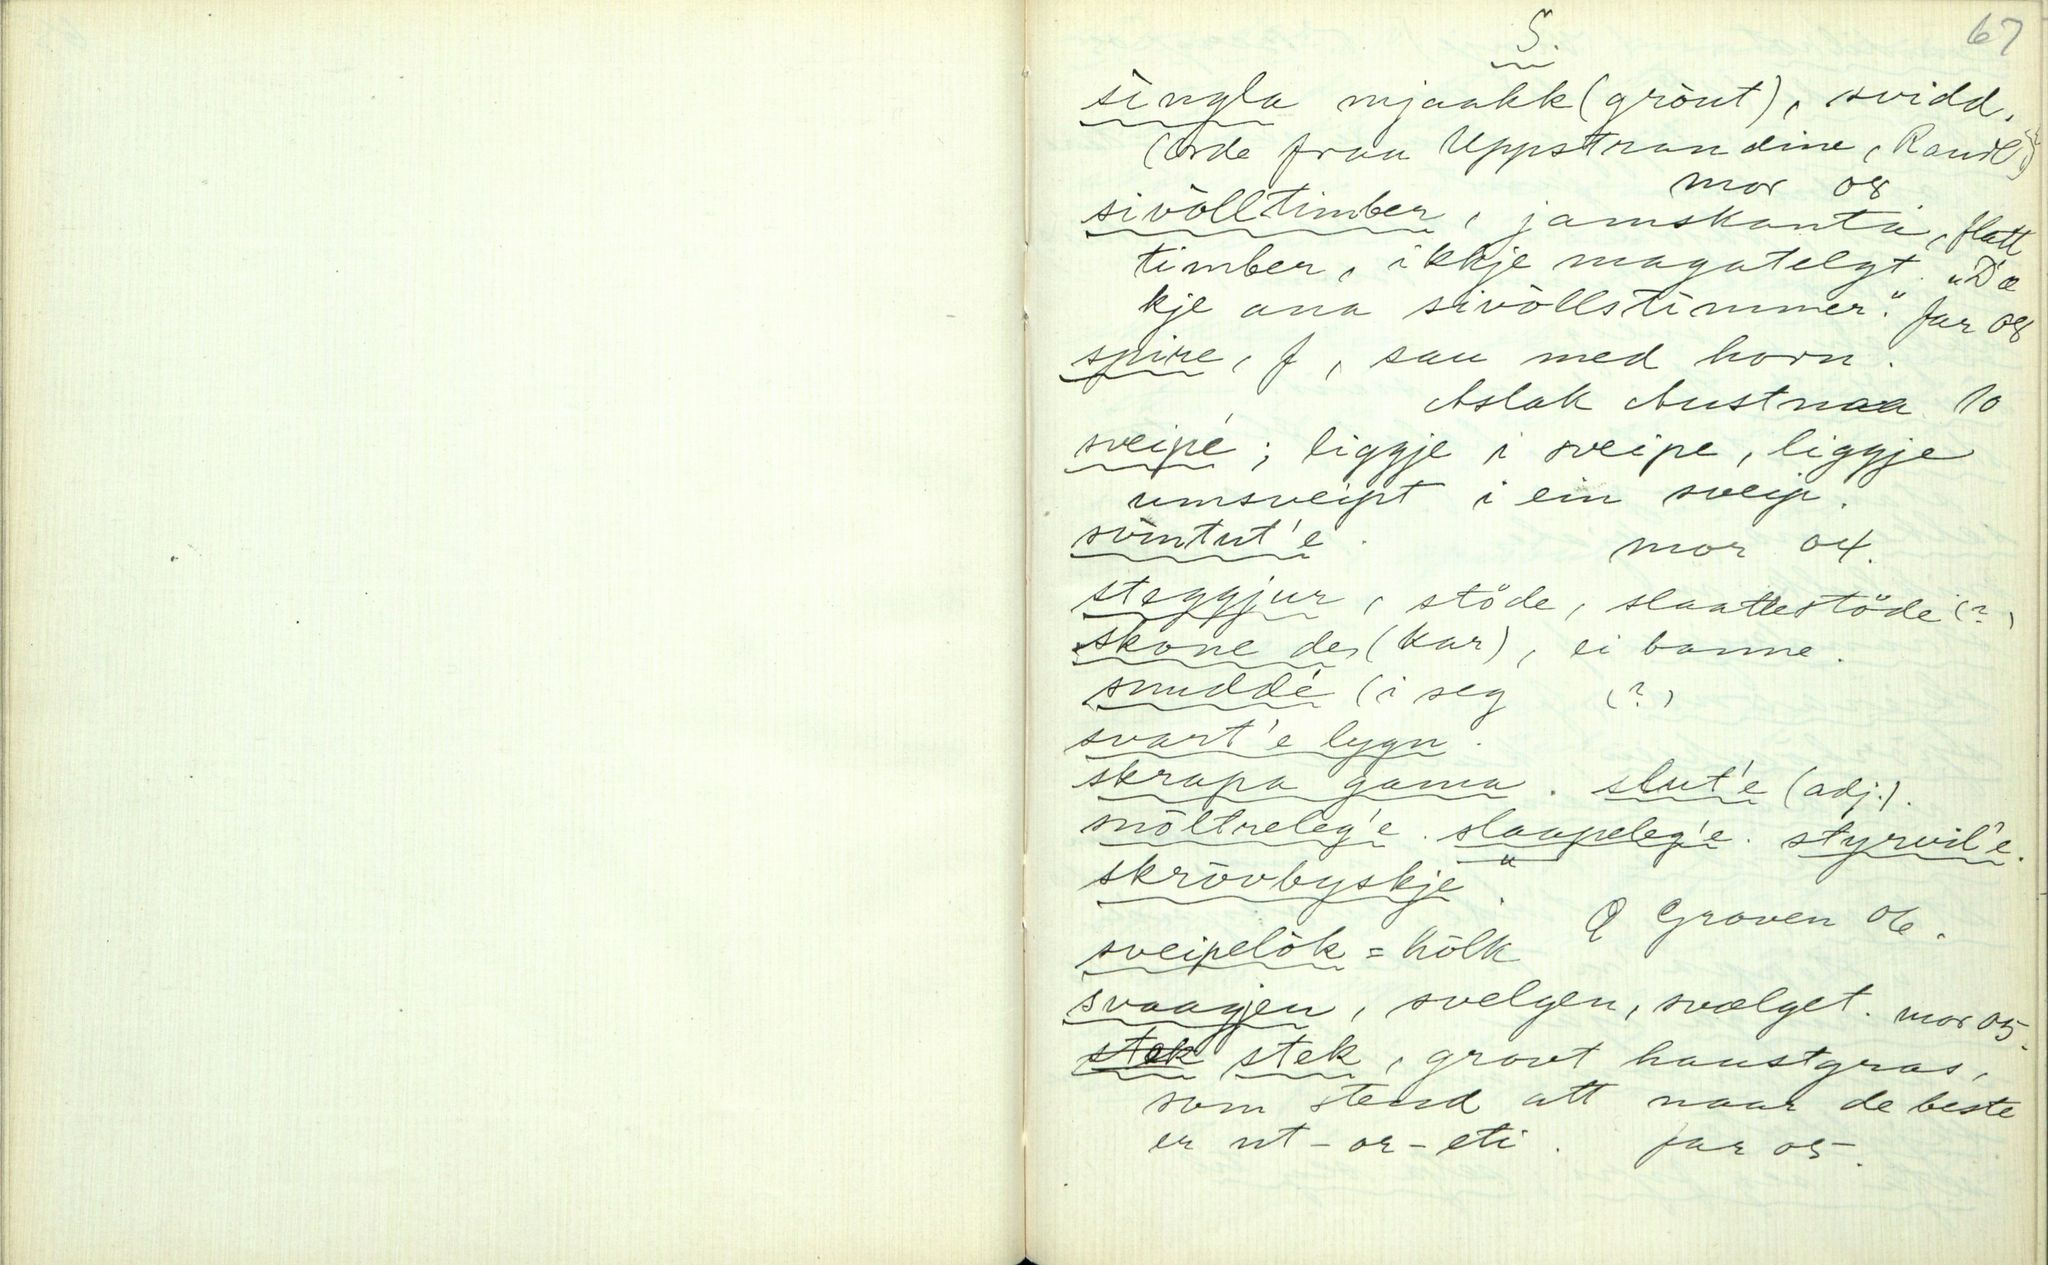 67
S.
singla mjaakk (grönt), svidd.
(orde fraa Uppstrandine,
mor 08
sivölltimber, jamskanta, flatt
timber, ikkje magatelgt. "D'æ
kje ana sivöllstimmer." far 08
spire, f, sau med horn.
Aslak Austnaa 10
sveipé; liggje i sveipe, liggje
umsveipt i ein sveip.
mor 04.
steggjur, stöde, slaattestöde (?)
skone de, (kar), ei banne.
snuddé (i seg (?)
svart'e lygn.
skrapa gama. slut'e (adj.).
slaapeleg'e. styrvil'e.
skrövbyskje".
O Groven 06.
sveipelök = hölk
svaagjen, svelgen, svælget. mor 05.
stek stek, grovt haustgras,
som stend att naar de beste
er ut-or-eti. far 05.